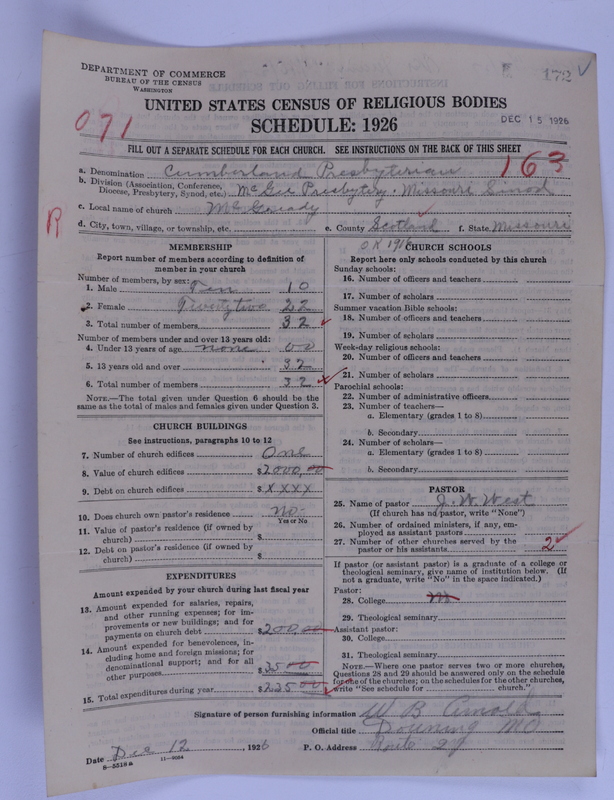 DEPARTMENT OF COMMERCE
BUREAU OF THE CENSUS
WASHINGTON
172
UNITED STATES CENSUS OF RELIGIOUS BODIES
SCHEDULE: 1926
DEC 15 1926
071
FILL OUT A SEPARATE SCHEDULE FOR EACH CHURCH. SEE INSTRUCTIONS ON THE BACK OF THIS SHEET
163
a. Denomination Cumberland Presbyterian
b. Division (Association, Conference, Diocese, Presbytery, Synod, etc.) McGee Presbytery. Missouri Sinod
c. Local name of church
R
d. City, town, village, or township, etc. e. County Scotland f. State Missouri
OK 1916
MEMBERSHIP
Report number of members according to definition of
member in your church
Number of members, by sex:
1. Male Ten 10
2. Female Twenty two 22
3. Total number of members 32
Number of members under and over 13 years old:
4. Under 13 years of age none 00
5. 13 years old and over 32
6. Total number of members 32
NOTE.—The total given under Question 6 should be
same as the total of males and females given under Question 3.
CHURCH BUILDINGS
See instructions, paragraphs 10 to 12
7. Number of church edifices One
8. Value of church edifices $2000,00
9. Debt on church edifices $XXXX
10. Does church own pastor's residence No
Yes or No
11. Value of pastor's residence (if owned by
church) $
12. Debt on pastor's residence (if owned by
church) $
EXPENDITURES
Amount expended by your church during last fiscal year
13. Amount expended for salaries, repairs,
and other running expenses; for im-
provements or new buildings; and for
payments on church debt $200,00
14. Amount expended for benevolences, in-
cluding home and foreign missions; for
denominational support; and for all
other purposes $
15. Total expenditures during year $225 00
CHURCH SCHOOLS
Report here only schools conducted by this church
Sunday schools:
16. Number of officers and teachers
17. Number of scholars
Summer vacation Bible schools:
18. Number of officers and teachers
19. Number of scholars
Week-day religious schools:
20. Number of officers and teachers
21. Number of scholars
Parochial schools:
22. Number of administrative officers
23. Number of teachers—
a. Elementary (grades 1 to 8)
b. Secondary
24. Number of scholars—
a. Elementary (grades 1 to 8)
b. Secondary
PASTOR
25. Name of pastor J. W. West
(If church has no pastor, write "None")
26. Number of ordained ministers, if any, em-
ployed as assistant pastors
27. Number of other churches served by the
pastor or his assistants 2
If pastor (or assistant pastor) is a graduate of a college or
theological seminary, give name of institution below. (If
not a graduate, write "No" in the space indicated.)
Pastor:
28. College
29. Theological seminary
Assistant pastor:
30. College
31. Theological seminary
NOTE.—Where one pastor serves two or more churches,
Questions 28 and 29 should be answered only on the schedule
for one of the churches; on the schedules for the other churches,
write "See schedule for church."
Signature of person furnishing information W B Arnold
Official title Downing MO
Date Dec 12, 1926 P. O. Address Route 2
8—5518a 11—9064